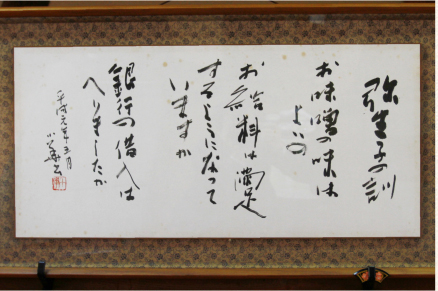 弥生子の訓
お味噌の味は
よいの
お給料は満足
するようになって
いますか
銀行の借入は
へりましたか
平成元年三月